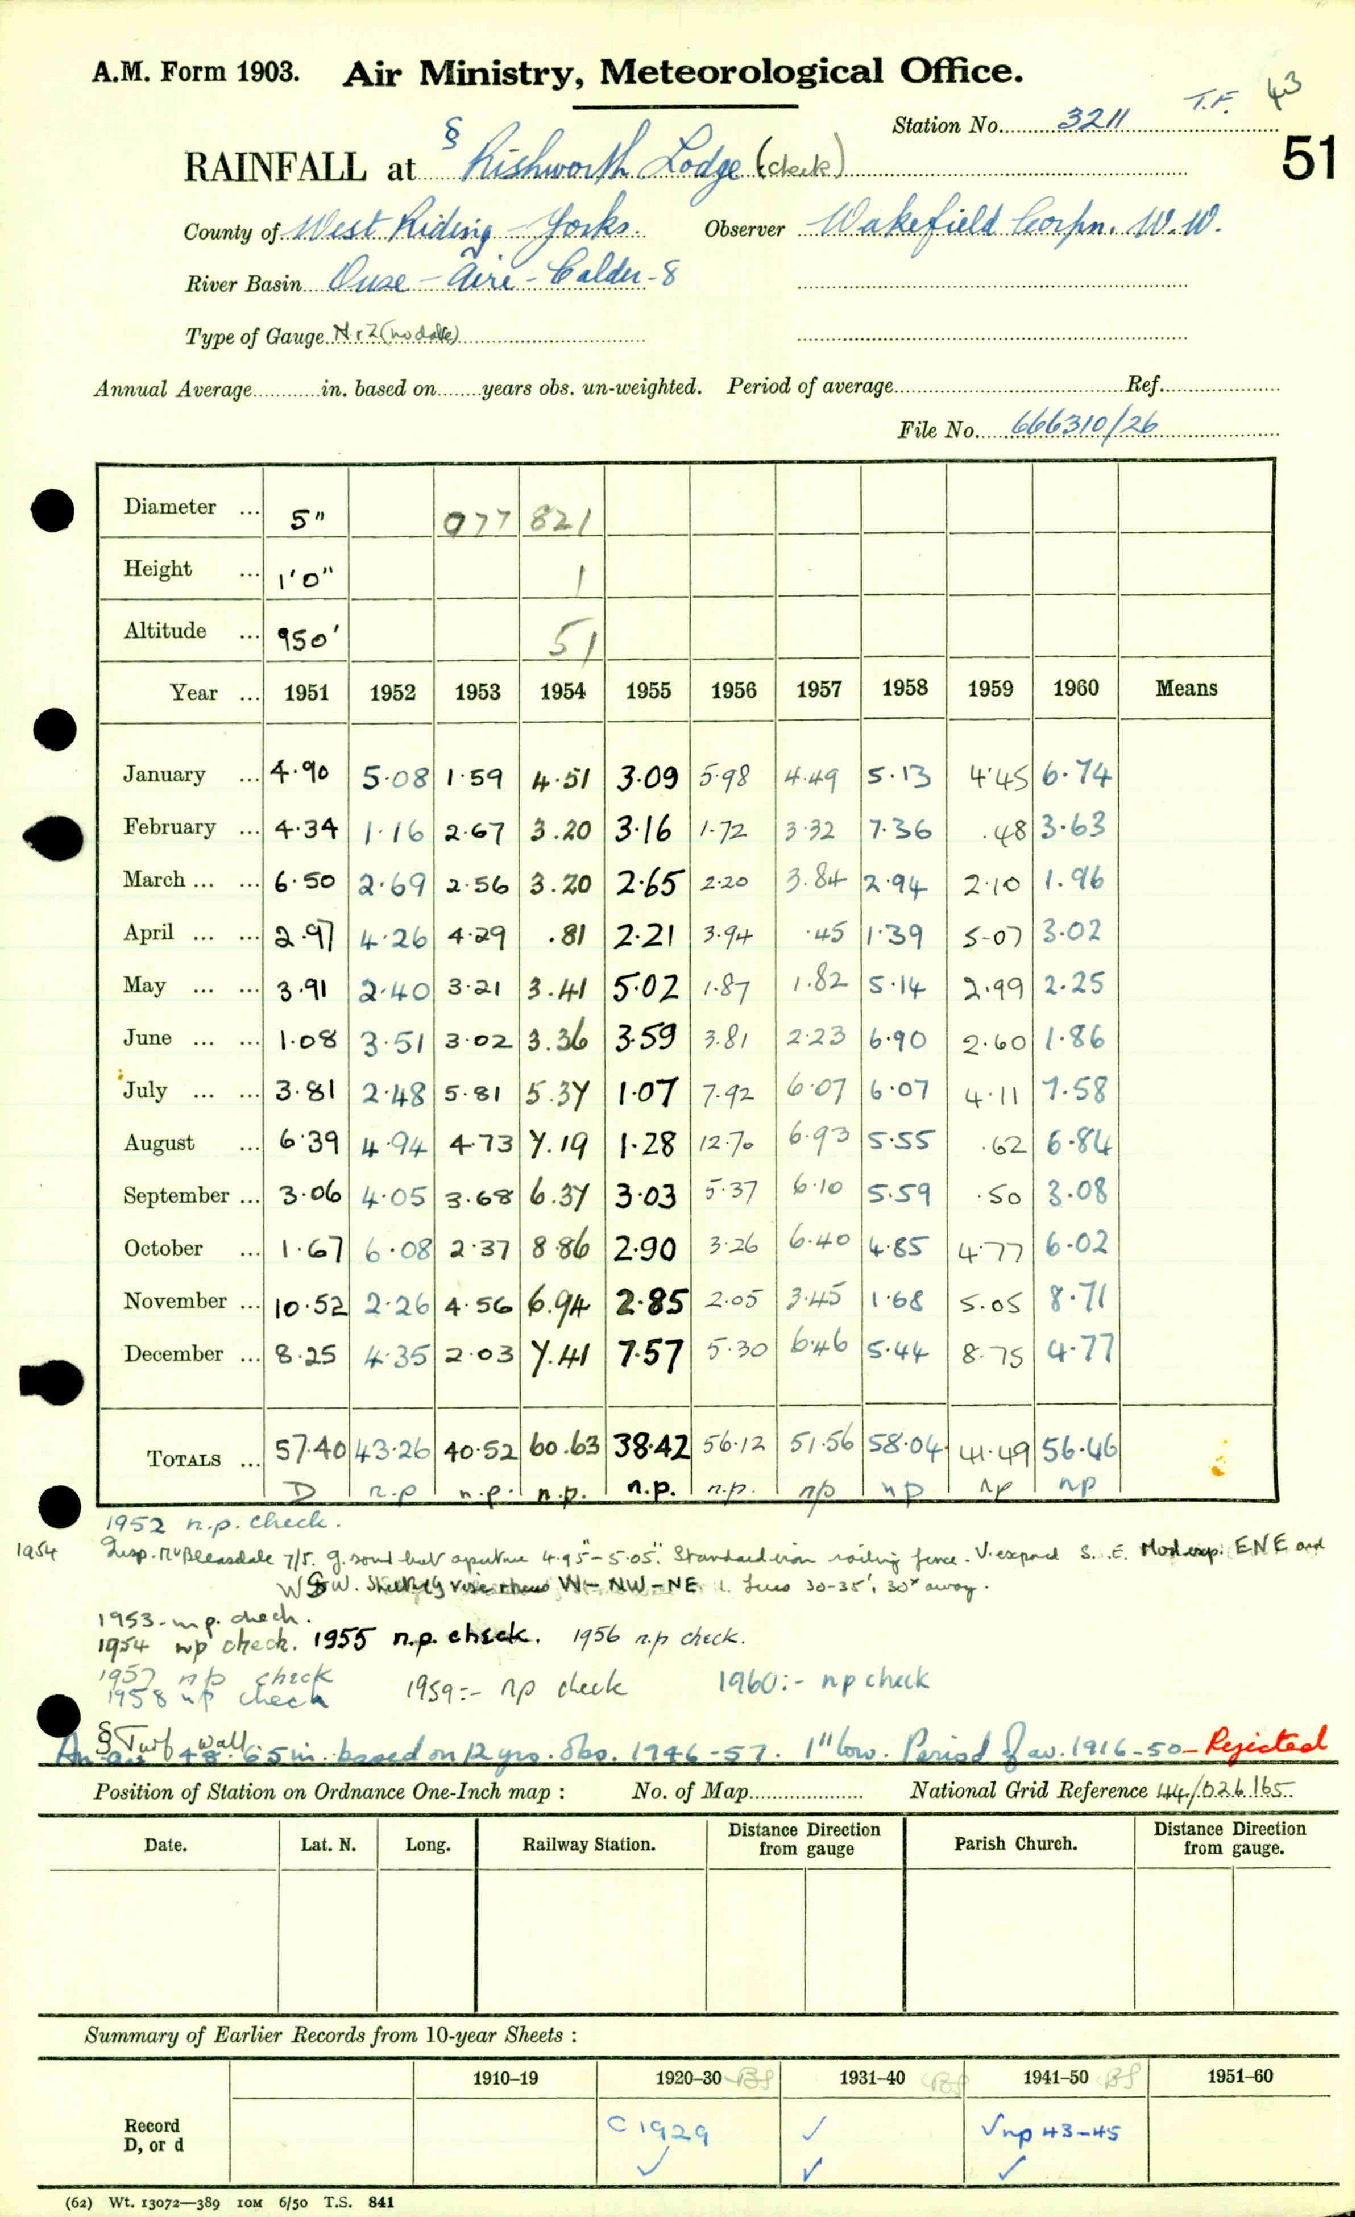 A.M. Form 1903. Air Ministry, Meteorological Office.
T.F. 43
Station No. 3211
51
RAINFALL at § Rishworth Lodge (check)
County of West Riding - Yorks. Observer Wakefield Corpn. W.W.
River Basin Ouse - Aire - Calder - 8
Type of Gauge N r 2 (no date)
Annual Average in. based on years obs. un-weighted. Period of average Ref.
File No. 666310/26
Diameter ... 5" 077 821
Height ... 1'0" 1
Altitude ... 950' 51
Year ... 1951 1952 1953 1954 1955 1956 1957 1958 1959 1960 Means
January ... 4.90 5.08 1.59 4.51 3.09 5.98 4.49 5.13 4.45 6.74
February ... 4.34 1.16 2.67 3.20 3.16 1.72 3.32 7.36 .48 3.63
March ... ... 6.50 2.69 2.56 3.20 2.65 2.20 3.84 2.94 2.10 1.96
April ... ... 2.97 4.26 4.29 .81 2.21 3.94 .45 1.39 5.07 3.02
May ... ... 3.91 2.40 3.21 3.41 5.02 1.87 1.82 5.14 2.99 2.25
June ... ... 1.08 3.51 3.02 3.36 3.59 3.81 2.23 6.90 2.60 1.86
July ... ... 3.81 2.48 5.81 5.37 1.07 7.92 6.07 6.07 4.11 7.58
August ... 6.39 4.94 4.73 7.19 1.28 12.70 6.93 5.55 .62 6.84
September ... 3.06 4.05 3.68 6.37 3.03 5.37 6.10 5.59 .50 3.08
October ... 1.67 6.08 2.37 8.86 2.90 3.26 6.40 4.85 4.77 6.02
November ... 10.52 2.26 4.56 6.94 2.85 2.05 3.45 1.68 5.05 8.71
December ... 8.25 4.35 2.03 7.41 7.57 5.30 6.46 5.44 8.75 4.77
TOTALS ... 57.40 43.26 40.52 60.63 38.42 56.12 51.56 58.04 41.49 56.46
D n.p n.p. n.p. n.p. n.p. np np np np
1952 n.p. check.
1954 Insp. Mr Bleasdale 7/5. g. sound but aperture 4.95"-5.05". Standard iron railing fence. V. exposed S. E. Mod exp. ENE and
WSW. W-NW-NE 30-35', 30x away.
1953 - n.p. check.
1954 np check. 1955 n.p. check. 1956 n.p check.
1957 np check
1958 np check 1959:- np check 1960:- np check
§ Turf wall.
An. av. 48.65 in. based on 12 yrs. obs. 1946-57. 1" low. Period of av. 1916-50 - Rejected
Position of Station on Ordnance One-Inch map : No. of Map National Grid Reference 44/026165
Date. Lat. N. Long. Railway Station. Distance Direction from gauge Parish Church. Distance Direction from gauge.
Summary of Earlier Records from 10-year Sheets :
1910–19 1920–30 BS 1931–40 BS 1941–50 BS 1951–60
Record C 1929 ✓ ✓np 43-45
D, or d ✓ ✓ ✓
(62) Wt. 13072—389 10M 6/50 T.S. 841